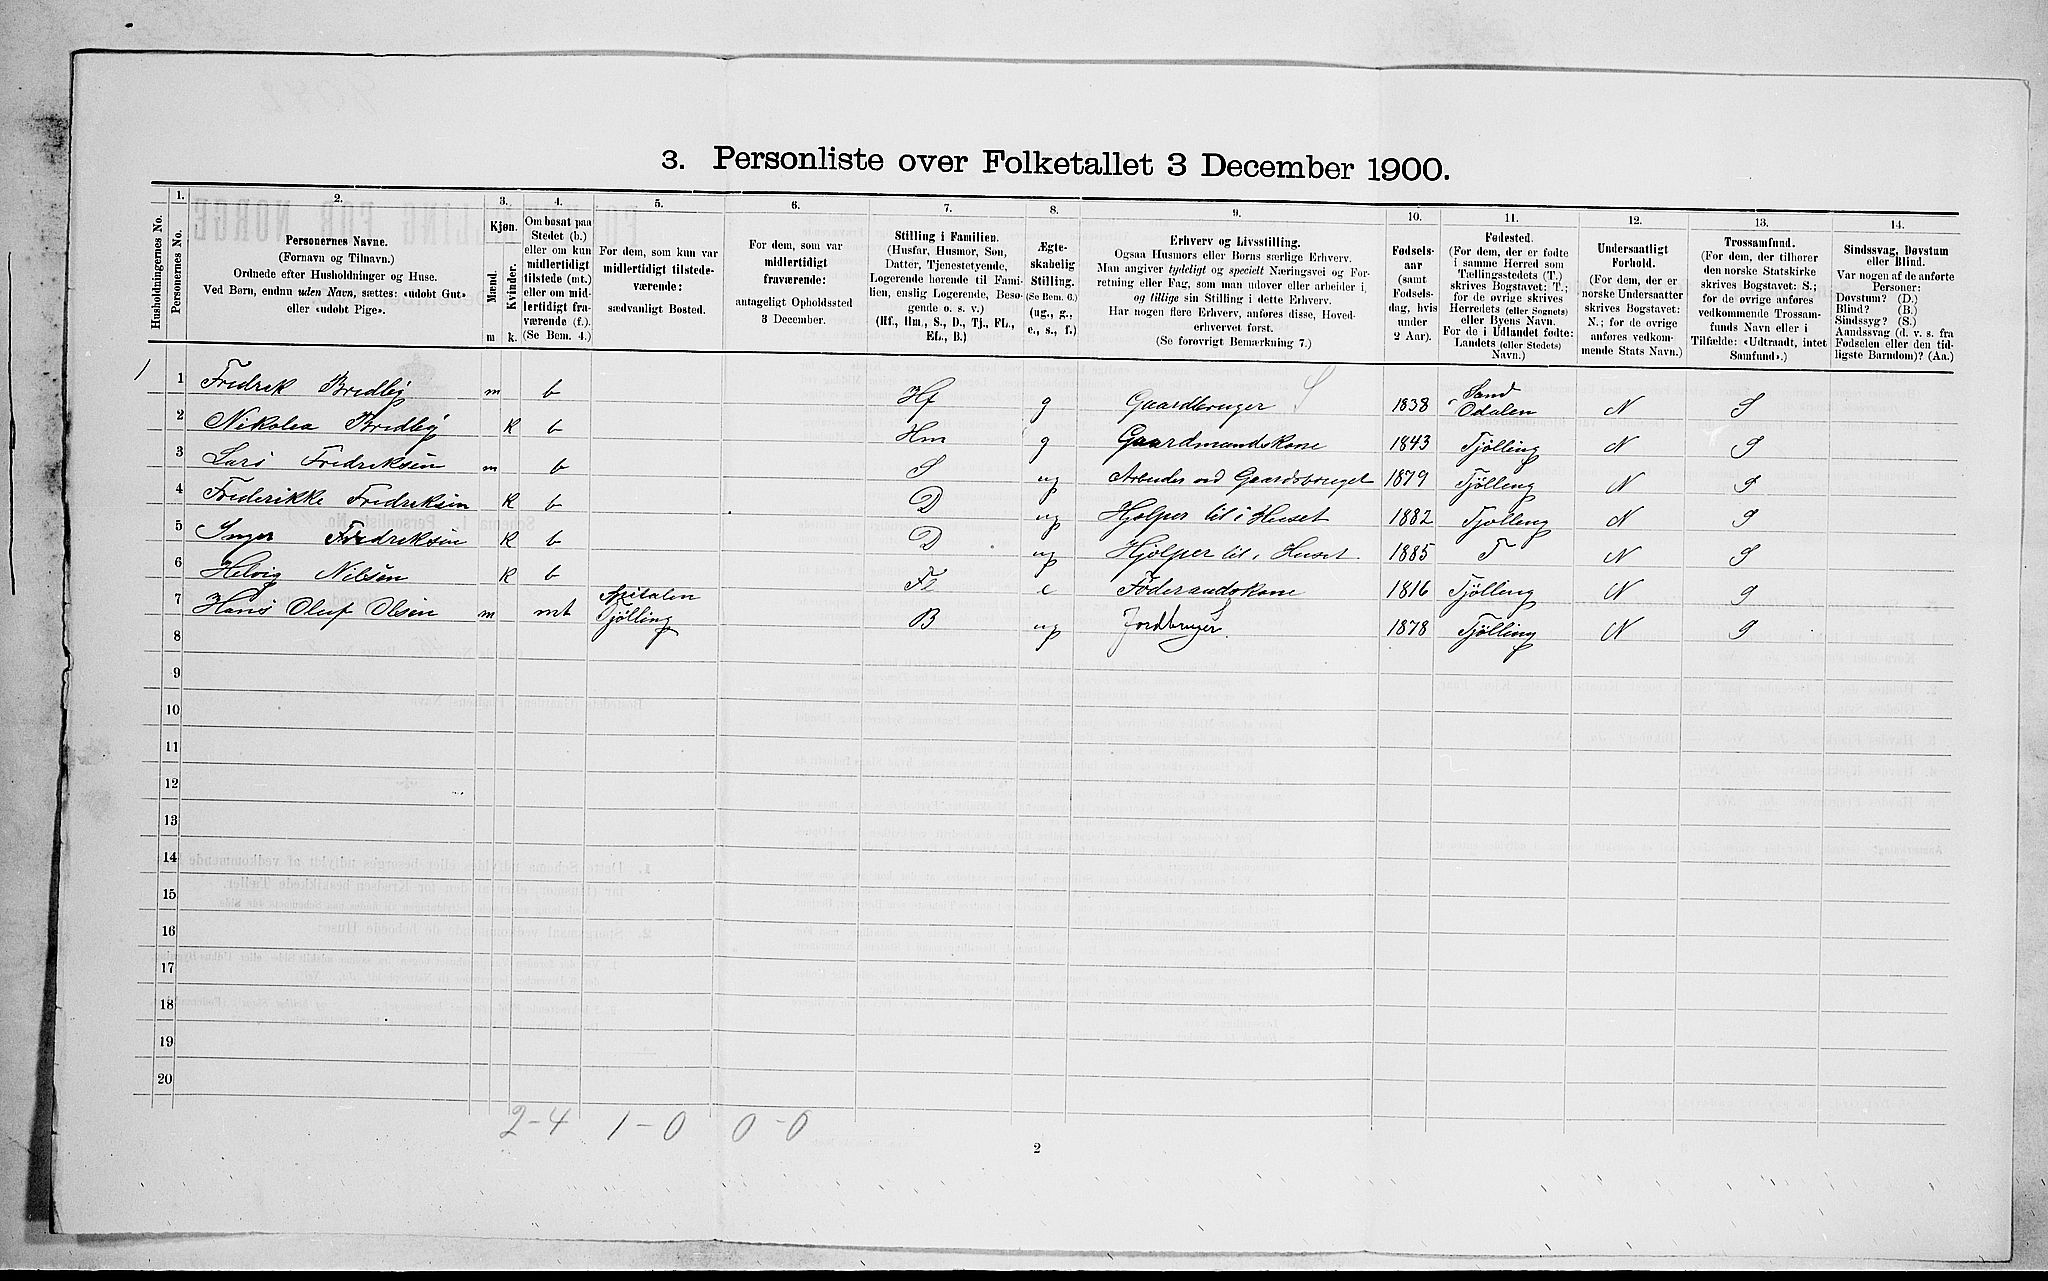 3. Personliste over Folketallet 3 December 1900.
Husholdningernes No.
1.
Personernes No.
2.
Personernes Navne.
(Fornavn og Tilnavn.)
Ordnede efter Husholdninger og Huse.
Ved Børn, endnu uden Navn, sættes: «udøbt Gut»
eller «udøbt Pige».
3.
Kjøn.
Mænd.
Kvinder.
m k.
4.
Om bosat paa
Stedet (b.)
eller om kun
midlertidigt
tilstede (mt.)
eller om mid-
lertidigt fra-
værende (f.)
(Se Bem. 4.)
5.
For dem, som kun var
midlertidigt tilstede-
værende:
sædvanligt Bosted.
6.
For dem, som var
midlertidigt
fraværende:
antageligt Opholdssted
3 December.
7.
Stilling i Familien.
(Husfar, Husmor, Søn,
Datter, Tjenestetyende,
Logerende hørende til Fami-
lien, enslig Logerende, Besø-
gende o. s. v.)
(Hf., Hm., S., D., Tj., FL.,
EL., B.)
8.
Ægte-
skabelig
Stilling.
(Se Bem. 6.)
(ug., g.,
e., s., f.)
9.
Erhverv og Livsstilling.
Ogsaa Husmors eller Børns særlige Erhverv.
Man angiver tydeligt og specielt Næringsvei og For-
retning eller Fag, som man udover eller arbeider i,
og tillige sin Stilling i dette Erhverv.
Har nogen flere Erhverv, anføres disse, Hoved-
erhvervet først.
(Se forøvrigt Bemærkning 7.)
10.
Fødsels-
aar
(samt
Fødsels-
dag, hvis
under
2 Aar).
11.
Fødested.
(For dem, der er fødte
i samme Herred som
Tællingsstedets (T.)
skrives Bogstavet: T.;
for de øvrige skrives
Herredets (eller Sognets)
eller Byens Navn.
For de i Udlandet fødte:
Landets (eller Stedets)
Navn.)
12.
Undersaatligt
Forhold.
(For dem, der er
norske Undersaatter
skrives Bogstavet:
N.; for de øvrige
anføres vedkom-
mende Stats Navn.)
13.
Trossamfund.
(For dem, der tilhører
den norske Statskirke
skrives Bogstavet: S.;
for de øvrige anføres
vedkommende Trossam-
funds Navn eller i
Tilfælde: «Udtraadt, intet
Samfund».)
14.
Sindssvag, Døvstum
eller Blind.
Var nogen af de anførte
Personer:
Døvstum? (D.)
Blind? (B.)
Sindssyg? (S.)
Aandssvag (d. v. s. fra
Fødselen eller den tid-
ligste Barndom)? (Aa.)
1 1 Fredrek Bredley m b Hf g Gaardbruger S 1838 Sand Odalen N S
2 Nikolea Bredley k b Hm g Gaardmandskone 1843 Tjølling N S
3 Lars Fredriksen m b S ug Arbeider ved Gaardsbruget 1879 Tjølling N S
4 Frederikke Fredriksen k b D ug Hjølper til i Huset 1882 Tjølling N S
5 Inger Fredreksen k b D ug Hjølper til i Huset. 1885 T N S
6 Helvig Nilsen k b Fl e Föderaadskone 1816 Tjølling N S
7 Hans Oluf Olsen m mt Spitalen Tjølling B ug Jordbruger S 1878 Tjølling N S
8
9
10
11
12
13
14
15
16
17
18
19
20
2-4 1-0 0-0
2